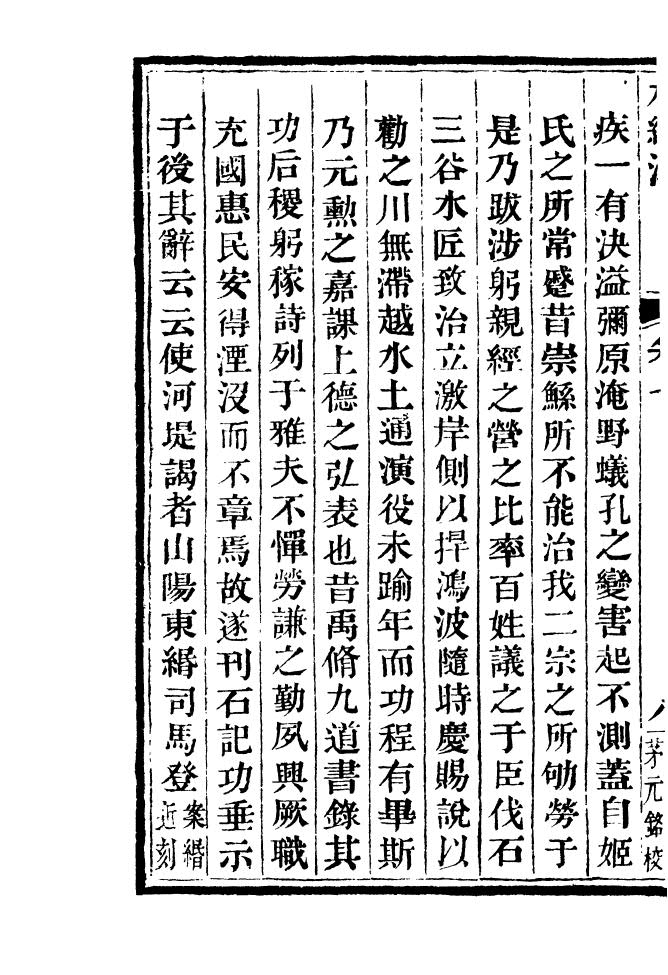 疾一有決溢彌原淹野蟻孔之變害起不測蓋自姬
氏之所常蹙昔崇鯀所不能治我二宗之所劬勞于
是乃跋涉躬親經之營之比率百姓議之于臣伐石
三谷水匠致治立激岸側以捍鴻波隨時慶賜說以
勸之川無滯越水土通演役未踰年而功程有畢斯
乃元勳之嘉課上德之弘表也昔禹脩九道書錄其
功后稷躬稼詩列于雅夫不憚勞謙之勤夙興厥職
充國惠民安得湮沒而不章焉故遂刊石記功垂示
于後其辭云云使河堤謁者山陽東緡司馬登案緡近刻
八
茅元銘校